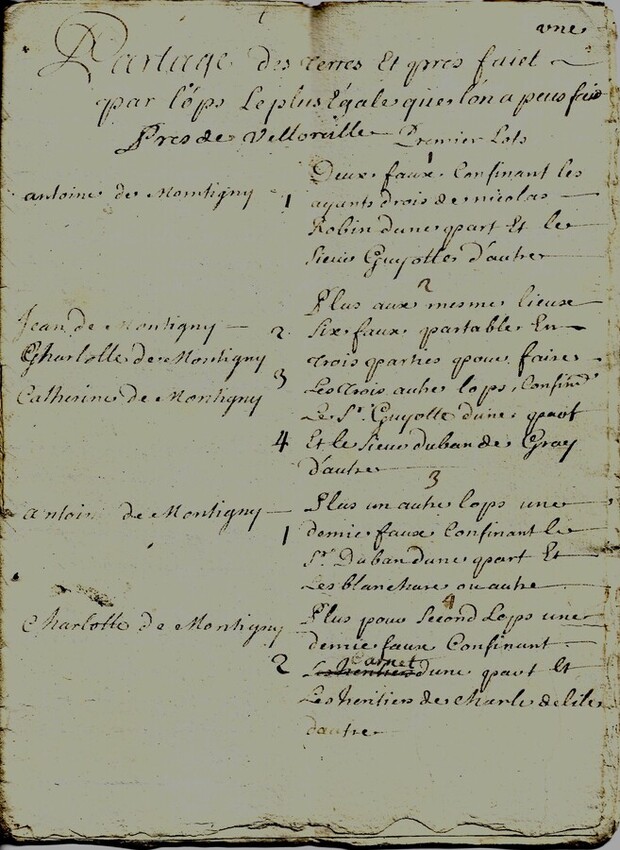 vne
Partage des terres Et pres faict
par lops Le plus Egale que lon a peus faid
Pres de Velloreille Premier Lots
1
Deux faux Confinant les
antoine de Montigny 1 ayants drois de nicolas
Robin dune part Et le
sieur Guyottes d'autre
2
Plus aux mesme lieux
Jean de Montigny 2 six faux partable En
Charlotte de Montigny 3 trois parties pour faire
Catherine de Montigny Les trois autre lops, Confind
Le Sr. Guyotte dune part
4 Et le sieur duban de Gray
d'autre
3
antoine de Montigny Plus un autre lops une
1 demie faux Confinant le
Sr. Duban dune part Et
Les blanchare ou autre
4
Charlotte de Montigny Plus pour second Lops une
demie faux Confinant
Carnet
2 Les heritiers dune part Et
Les heritiers de Charle de lile
dautre